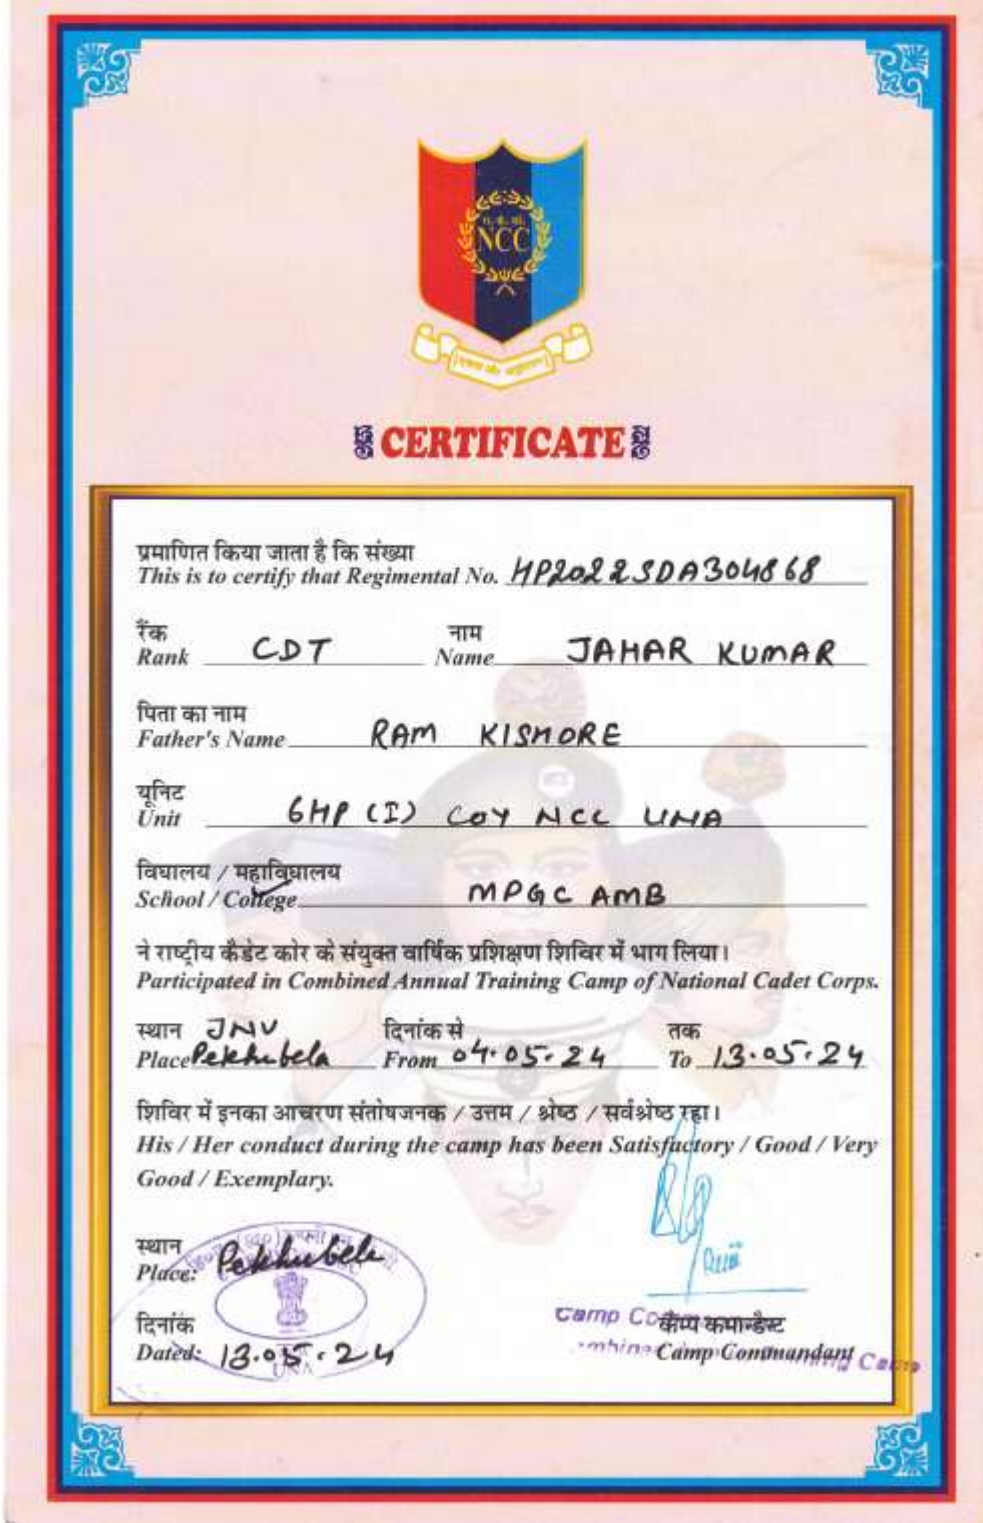 रा. कै. को.
NCC
एकता और अनुशासन
CERTIFICATE
प्रमाणित किया जाता है कि संख्या
This is to certify that Regimental No. HP2022SDA304868
रैंक नाम
Rank CDT Name JAHAR KUMAR
पिता का नाम
Father's Name RAM KISHORE
यूनिट
Unit 6HP (I) COY NCC UNA
विद्यालय / महाविद्यालय
School / College MPGC AMB
ने राष्ट्रीय कैडेट कोर के संयुक्त वार्षिक प्रशिक्षण शिविर में भाग लिया।
Participated in Combined Annual Training Camp of National Cadet Corps.
स्थान JNV दिनांक से तक
Place Pekhubela From 04.05.24 To 13.05.24
शिविर में इनका आचरण संतोषजनक / उत्तम / श्रेष्ठ / सर्वश्रेष्ठ रहा।
His / Her conduct during the camp has been Satisfactory / Good / Very
Good / Exemplary.
स्थान
Place: Pekhubela
दिनांक
Dated: 13.05.24
UNA
Camp
कैम्प कमान्डैन्ट
Camp Commandant